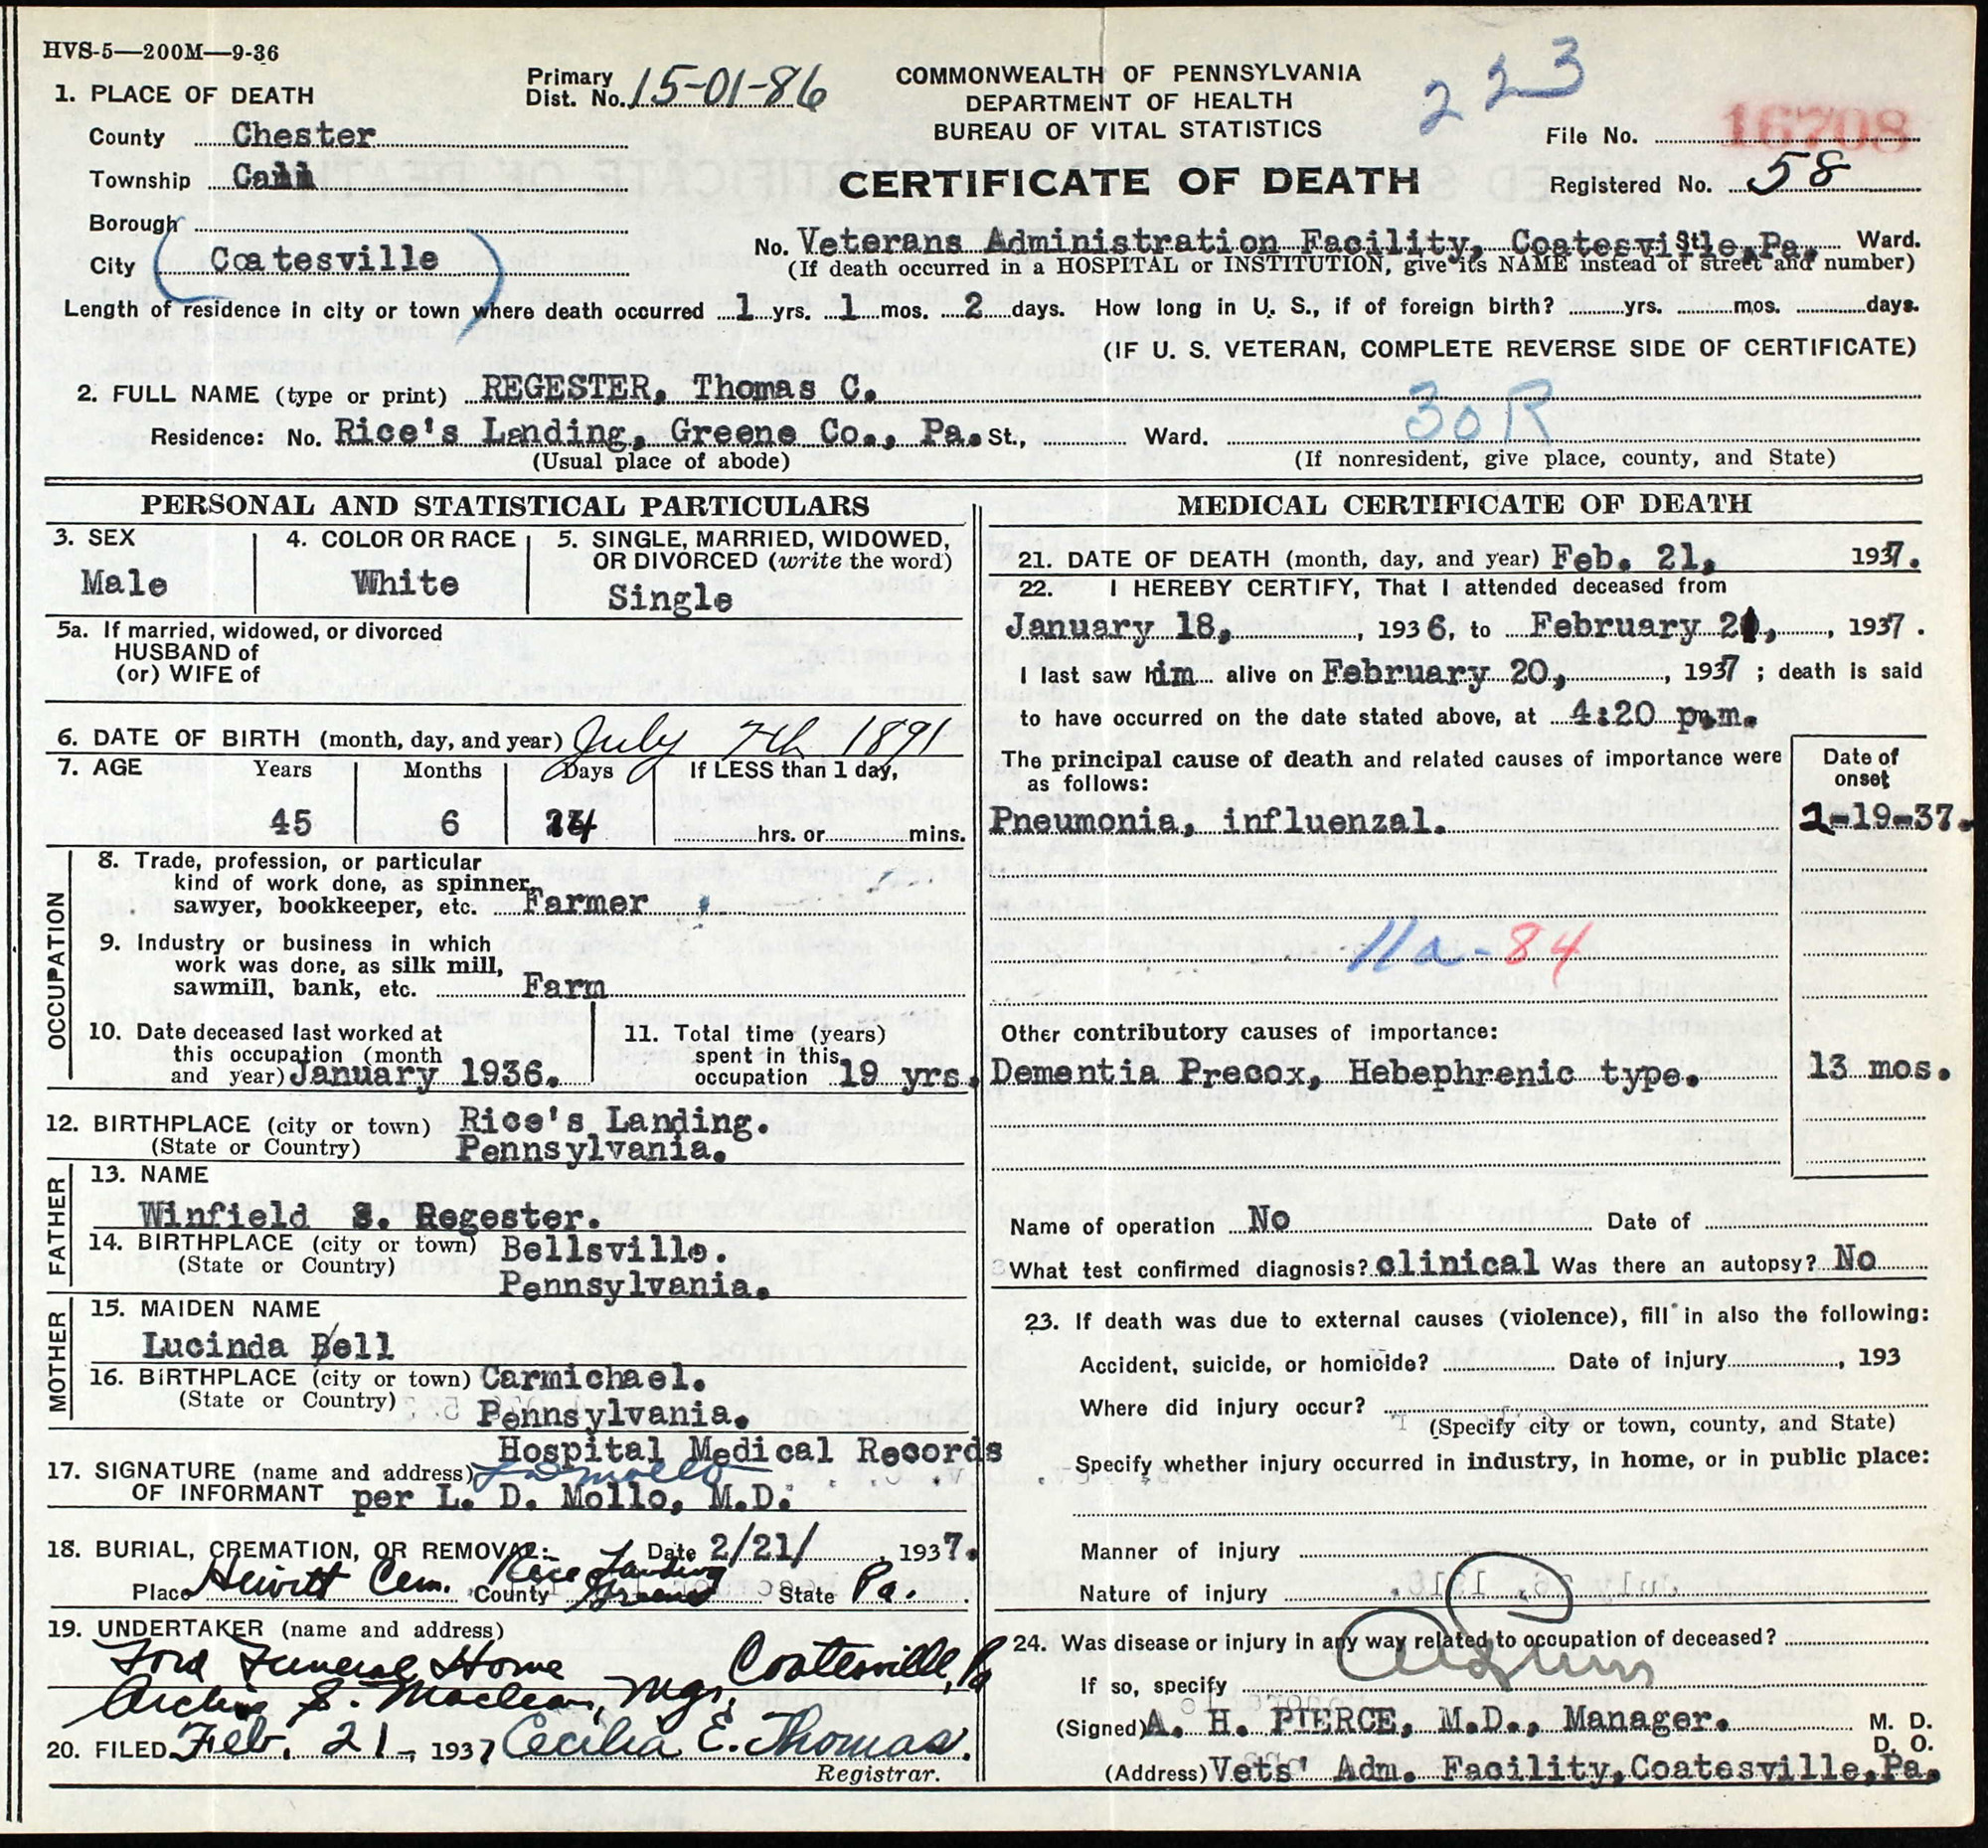 HVS-5—200M—9-36
1. PLACE OF DEATH
Primary Dist. No. 15-01-86
COMMONWEALTH OF PENNSYLVANIA
DEPARTMENT OF HEALTH
BUREAU OF VITAL STATISTICS
223
File No. 16708
County Chester
Township Caln
CERTIFICATE OF DEATH
Registered No. 58
Borough
City Coatesville
No. Veterans Administration Facility, Coatesville, Pa. St., Ward.
(If death occurred in a HOSPITAL or INSTITUTION, give its NAME instead of street and number)
Length of residence in city or town where death occurred 1 yrs. 1 mos. 2 days. How long in U. S., if of foreign birth? yrs. mos. days.
(IF U. S. VETERAN, COMPLETE REVERSE SIDE OF CERTIFICATE)
2. FULL NAME (type or print) REGESTER, Thomas C.
30R
Residence: No. Rice's Landing, Greene Co., Pa. St., Ward.
(Usual place of abode)
(If nonresident, give place, county, and State)
PERSONAL AND STATISTICAL PARTICULARS
3. SEX
Male
4. COLOR OR RACE
White
5. SINGLE, MARRIED, WIDOWED, OR DIVORCED (write the word)
Single
5a. If married, widowed, or divorced
HUSBAND of
(or) WIFE of
6. DATE OF BIRTH (month, day, and year) July 7th 1891
7. AGE Years Months Days If LESS than 1 day,
45 6 14 hrs. or mins.
OCCUPATION
8. Trade, profession, or particular
kind of work done, as spinner,
sawyer, bookkeeper, etc. Farmer
9. Industry or business in which
work was done, as silk mill,
sawmill, bank, etc. Farm
10. Date deceased last worked at
this occupation (month
and year) January 1936.
11. Total time (years)
spent in this
occupation 19 yrs.
12. BIRTHPLACE (city or town) Rice's Landing.
(State or Country) Pennsylvania.
FATHER
13. NAME
Winfield S. Regester.
14. BIRTHPLACE (city or town) Bellsville.
(State or Country) Pennsylvania.
MOTHER
15. MAIDEN NAME
Lucinda Bell
16. BIRTHPLACE (city or town) Carmichael.
(State or Country) Pennsylvania.
Hospital Medical Records
17. SIGNATURE (name and address) L D Mollo
OF INFORMANT per L. D. Mollo, M.D.
18. BURIAL, CREMATION, OR REMOVAL: Date 2/21/ 1937.
Rice Landing
Place Hewitt Cem. County Greene State Pa.
19. UNDERTAKER (name and address)
Ford Funeral Home Coatesville, Pa
Archie S. Maclean, Mgr,
20. FILED Feb. 21- 1937 Cecilia E. Thomas.
Registrar.
MEDICAL CERTIFICATE OF DEATH
21. DATE OF DEATH (month, day, and year) Feb. 21, 1937.
22. I HEREBY CERTIFY, That I attended deceased from
January 18, , 1936, to February 21, , 1937.
I last saw him alive on February 20, , 1937 ; death is said
to have occurred on the date stated above, at 4:20 p.m.
The principal cause of death and related causes of importance were
as follows:
Date of onset
Pneumonia, influenzal. 2-19-37.
11a-84
Other contributory causes of importance:
Dementia Precox, Hebephrenic type. 13 mos.
Name of operation No Date of
What test confirmed diagnosis? clinical Was there an autopsy? No
23. If death was due to external causes (violence), fill in also the following:
Accident, suicide, or homicide? Date of injury , 193
Where did injury occur?
(Specify city or town, county, and State)
Specify whether injury occurred in industry, in home, or in public place:
Manner of injury
Nature of injury
24. Was disease or injury in any way related to occupation of deceased?
If so, specify
(Signed) A. H. PIERCE, M.D., Manager. M. D.
D. O.
(Address) Vets' Adm. Facility, Coatesville, Pa.